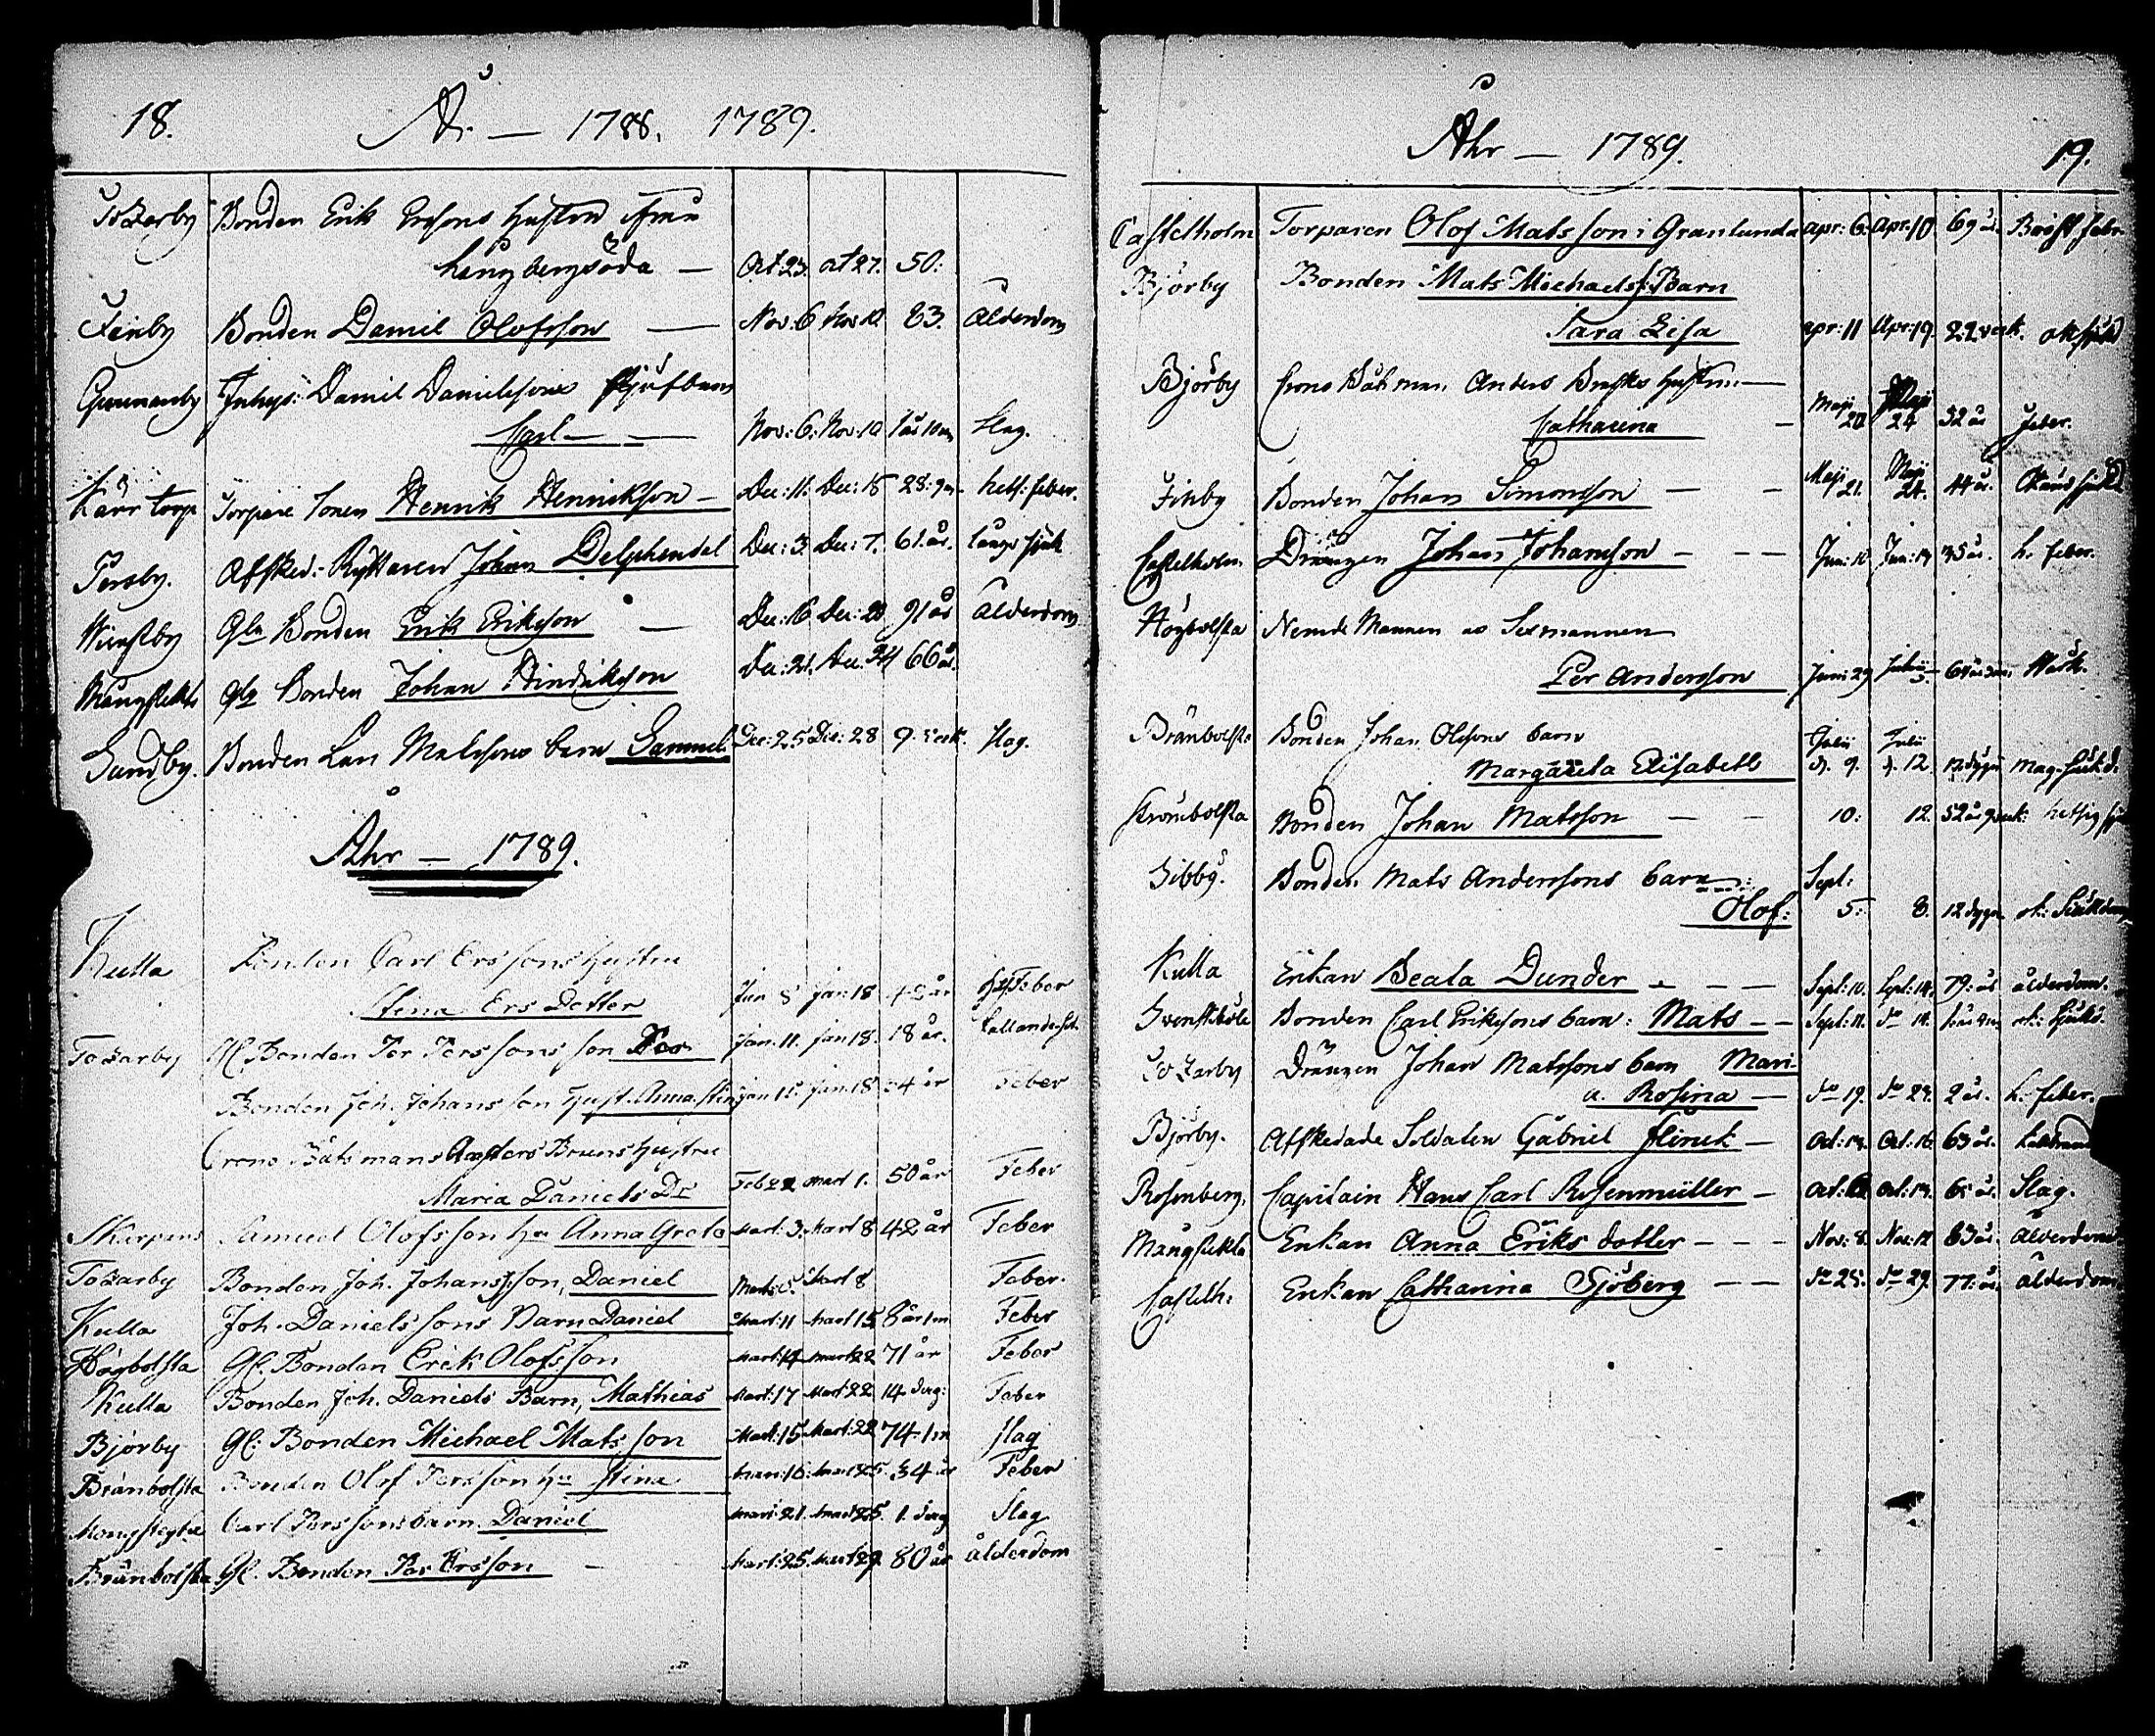 18. Åhr — 1788. 1789.
Tosarby Bonden Erik Ersons Hustru
Långbergsöda — Oct 23. oct 27. 50:
Finby Bonden Daniel Olofsson — Nov: 6 Nov: 10. 83. Ålderdom
Gunnarby Inhys: Daniel Danielsons
Carl — Nov: 6: Nov: 10 Slag.
Kårr torp Torpare Sonen Henrik Henrikson — Dec: 11: Dec: 15 hets: feber.
Persby. Afsked: Ryttaren Johan Delphendal Dec: 3. Dec: 7. 61. år. Lungs
Gla Bonden Erik Erikson — Dec: 16 Dec: 20 91 år Ålderdom
Mångstekta Gla Bonden Johan Hindrikson Dec: 21. Dec: 24 66 år.
Sundby. Bonden Lars Matssons barn Samuel Dec: 25 Dec: 28 9 veck. Slag.
Åhr — 1789.
Kulla Bonden Carl Ers sons Hustru
Stina Ers Dotter Jan 8 Jan: 18 42 år Feber
Tosarby Gl. Bonden Per Pers sons son Per Jan. 11. Jan 18. 18 år.
Bonden Joh. Johans son Hust. Anna Stin Jan 12. Jan: 18 54 år Feber
Crono Båtsmans Bruns Hustru
Maria Daniels Dr Feb 22 Mart 1. 50 år Feber
Skarpens Samuel Olofs son Hu Anna Greta Mart: 3. Mart 8 42 år Feber
Tosarby Bonden Joh. Johansson, Daniel Mart 8 Feber.
Kulla Joh. Daniels sons Barn Daniel Mart: 11 Mart 15 8 år 1 m Feber
Högbolsta Gl. Bonden Erik Olofsson Mart: 14 Mart 22 71 år Feber
Kulla Bonden Joh. Daniels Barn, Mathias Mart: 17 Mart 22 14 dag: Feber
Bjorby Gl: Bonden Michael Mats son Mart: 15 Mart: 22 74. 1 m Slag
Brånbolsta Bonden Olof Persson Hu Stina Mart: 16 Mart 25. 34 år Feber
Mongstegta Carl Perssons barn Daniel Mart: 21. Mart 25. 1. dag Slag
Brånbolsta Gl. Bonden Per Ersson — Mart: 25. Mart 29. 80 år Ålderdom
Åhr — 1789. 19.
Castelholm Torparen Olof Mats son i Granlunda apr: 6. Apr: 10. 69 år. Bröst febr.
Bjorby Bonden Mats Michaels: Barn
Sara Lisa apr: 11 Apr: 19. 2: veck. ok sjukd
Bjorby Crono Båtsman Anders Hustru —
Catharina — Maji 20 Maji 24 32 år feber.
Finby Bonden Johan Simonsson — — Maji 21. Maji 24. 44 år.
Castelholm Drängen Johan Johansson — — — Jun: 10 Jun: 14 35 år. h. feber.
Högbolsta Nemde Mannen Sexmannen
Per Andersson Juni: 29
Brånbolsta Bonden Johan Olssons barn
Margareta Elisabeth Julii d. 9. Julii d. 12. 12 dygn
Strömbolsta Bonden Johan Matsson — — 10: 12. 52 år hetsig
Sibby. Bonden Mats Anderssons barn: Sept:
Olof: 5: 8. 12 dygn ok: Siukdom
Kulla Enkan Beata Dunder — — Sept: 10. Sept: 14. 79: år ålderdom.
Svenstböle Bonden Carl Eriksons barn: Mats — — Sept: 11. do 14. ok: sjuk:
Tosarby Drängen Johan Matssons barn Mari-
a Rosina — do 19. do 27. 2 år. h. feber.
Bjorby. Afskedade Soldaten Gabriel Flinck — Oct: 14. Oct: 16. 63 år.
Rosenberg. Capitain Hans Carl Rosenmüller — Oct: Oct: 14. 65 år. Slag.
Mångstekta Enkan Anna Eriks dotter — — — Nov: 8. Nov: 12. 83 år. Ålderdom
Castelh: Enkan Catharina Sjöberg — — do 25. do 29. 77: år. ålderdom